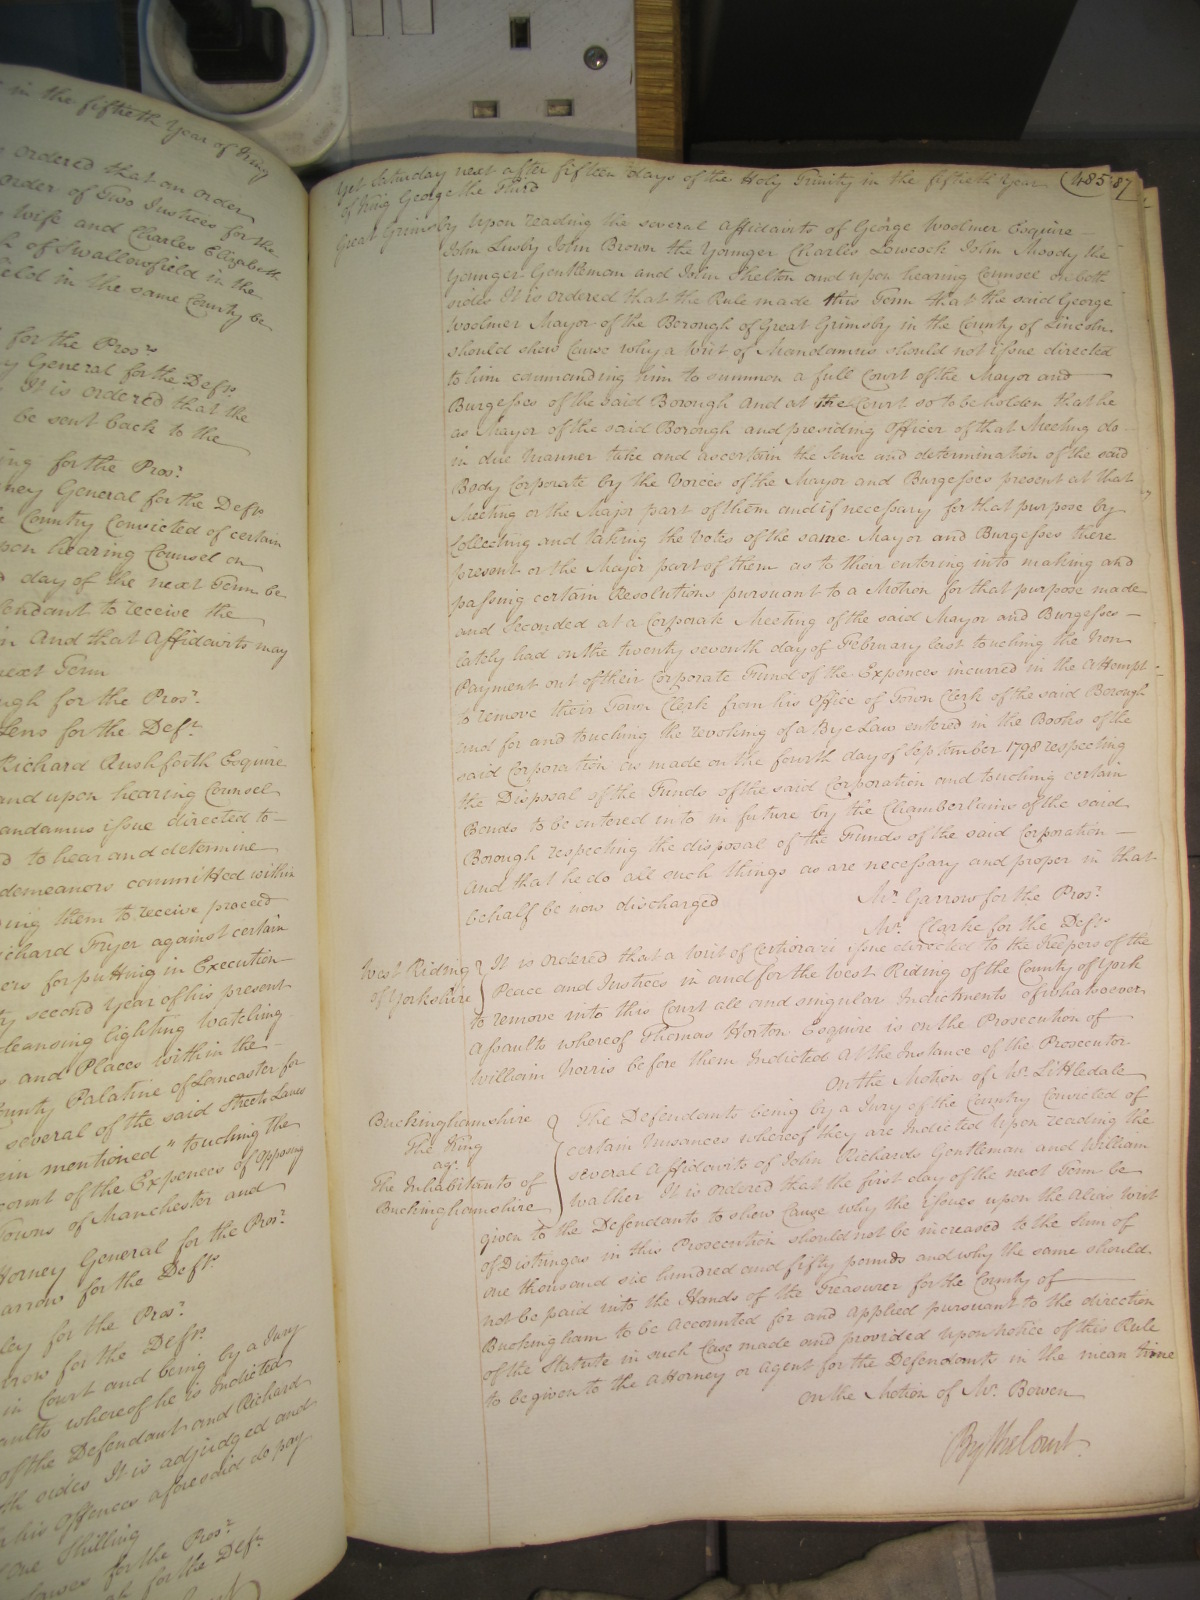 in the fiftieth Year of King
ordered that an order
order of Two Justices for the
wife and Charles Elizabeth
of Swallowfield in the
field in the same County be
for the Prosr.
General for the Defts.
It is ordered that the
be sent back to the
for the Prosr.
General for the Defts
Country Convicted of certain
upon hearing Counsel on
day of the next Term be
to receive the
And that Affidavits may
next Term
for the Prosr.
Lens for the Deft.
Richard Rushforth Esquire
and upon hearing Counsel
Mandamus issue directed to
to hear and determine
committed within
them to receive proceed
Richard Fryer against certain
for putting in Execution
second Year of his present
Cleansing lighting watching
and Places within the
County Palatine of Lancaster for
several of the said Streets Lanes
mentioned" touching the
of the Expences of opposing
Towns of Manchester and
Attorney General for the Prosr.
Garrow for the Defts.
for the Prosr.
for the Deft.
in Court and being by a Jury
whereof he is Indicted
of the Defendant and Richard
sides It is adjudged and
his Offences aforesaid do pay
One Shilling
for the Prosr.
for the Deft.
Yet Saturday next after fifteen days of the Holy Trinity in the fiftieth Year (485) 87
of King George the Third
Great Grimsby Upon reading the several Affidavits of George Woolmer Esquire
John Lusby John Brown the Younger Charles Lowcock John Moody the
Younger Gentleman and John Skelton and upon hearing Counsel on both
sides It is ordered that the Rule made this Term that the said George
Woolmer Mayor of the Borough of Great Grimsby in the County of Lincoln
should shew Cause why a Writ of Mandamus should not issue directed
to him commanding him to summon a full Court of the Mayor and
Burgesses of the said Borough and at the Court so to be holden that he
as Mayor of the said Borough and presiding Officer of that Meeting do
in due Manner take and ascertain the sense and determination of the said
Body Corporate by the Voices of the Mayor and Burgesses present at that
Meeting or the Major part of them and if necessary for that purpose by
Collecting and taking the Votes of the same Mayor and Burgesses there
present or the Major part of them as to their entering into making and
passing certain Resolutions pursuant to a Motion for that purpose made
and seconded at a Corporate Meeting of the said Mayor and Burgesses
lately had on the twenty seventh day of February last touching the Non
Payment out of their Corporate Fund of the Expences incurred in the Attempt
to remove their Town Clerk from his Office of Town Clerk of the said Borough
and for and touching the revoking of a Bye Law entered in the Books of the
said Corporation as made on the fourth day of September 1798 respecting
the Disposal of the Funds of the said Corporation and touching certain
Bonds to be entered into in future by the Chamberlains of the said
Borough respecting the disposal of the Funds of the said Corporation
and that he do all such things as are necessary and proper in that
behalf be now discharged
Mr. Garrow for the Prosr.
Mr. Clarke for the Deft.
West Riding
of Yorkshire
It is ordered that a Writ of Certiorari issue directed to the Keepers of the
Peace and Justices in and for the West Riding of the County of York
to remove into this Court all and singular Indictments of whatsoever
Assaults whereof Thomas Horton Esquire is on the Prosecution of
William Norris before them Indicted At the Instance of the Prosecutor
On the Motion of Mr. Littledale
Buckinghamshire
The King
agt.
The Inhabitants of
Buckinghamshire
The Defendants being by a Jury of the Country Convicted of
certain Nusances whereof they are Indicted Upon reading the
several Affidavits of John Richards Gentleman and William
Walther It is ordered that the first day of the next Term be
given to the Defendants to shew Cause why the issues upon the Alias Writ
of Distringas in this Prosecution should not be increased to the Sum of
one thousand six hundred and fifty pounds and why the same should
not be paid into the Hands of the Treasurer for the County of
Buckingham to be accounted for and applied pursuant to the direction
of the Statute in such Case made and provided upon notice of this Rule
to be given to the Attorney or Agent for the Defendants in the mean time
On the Motion of Mr. Bowen
By the Court